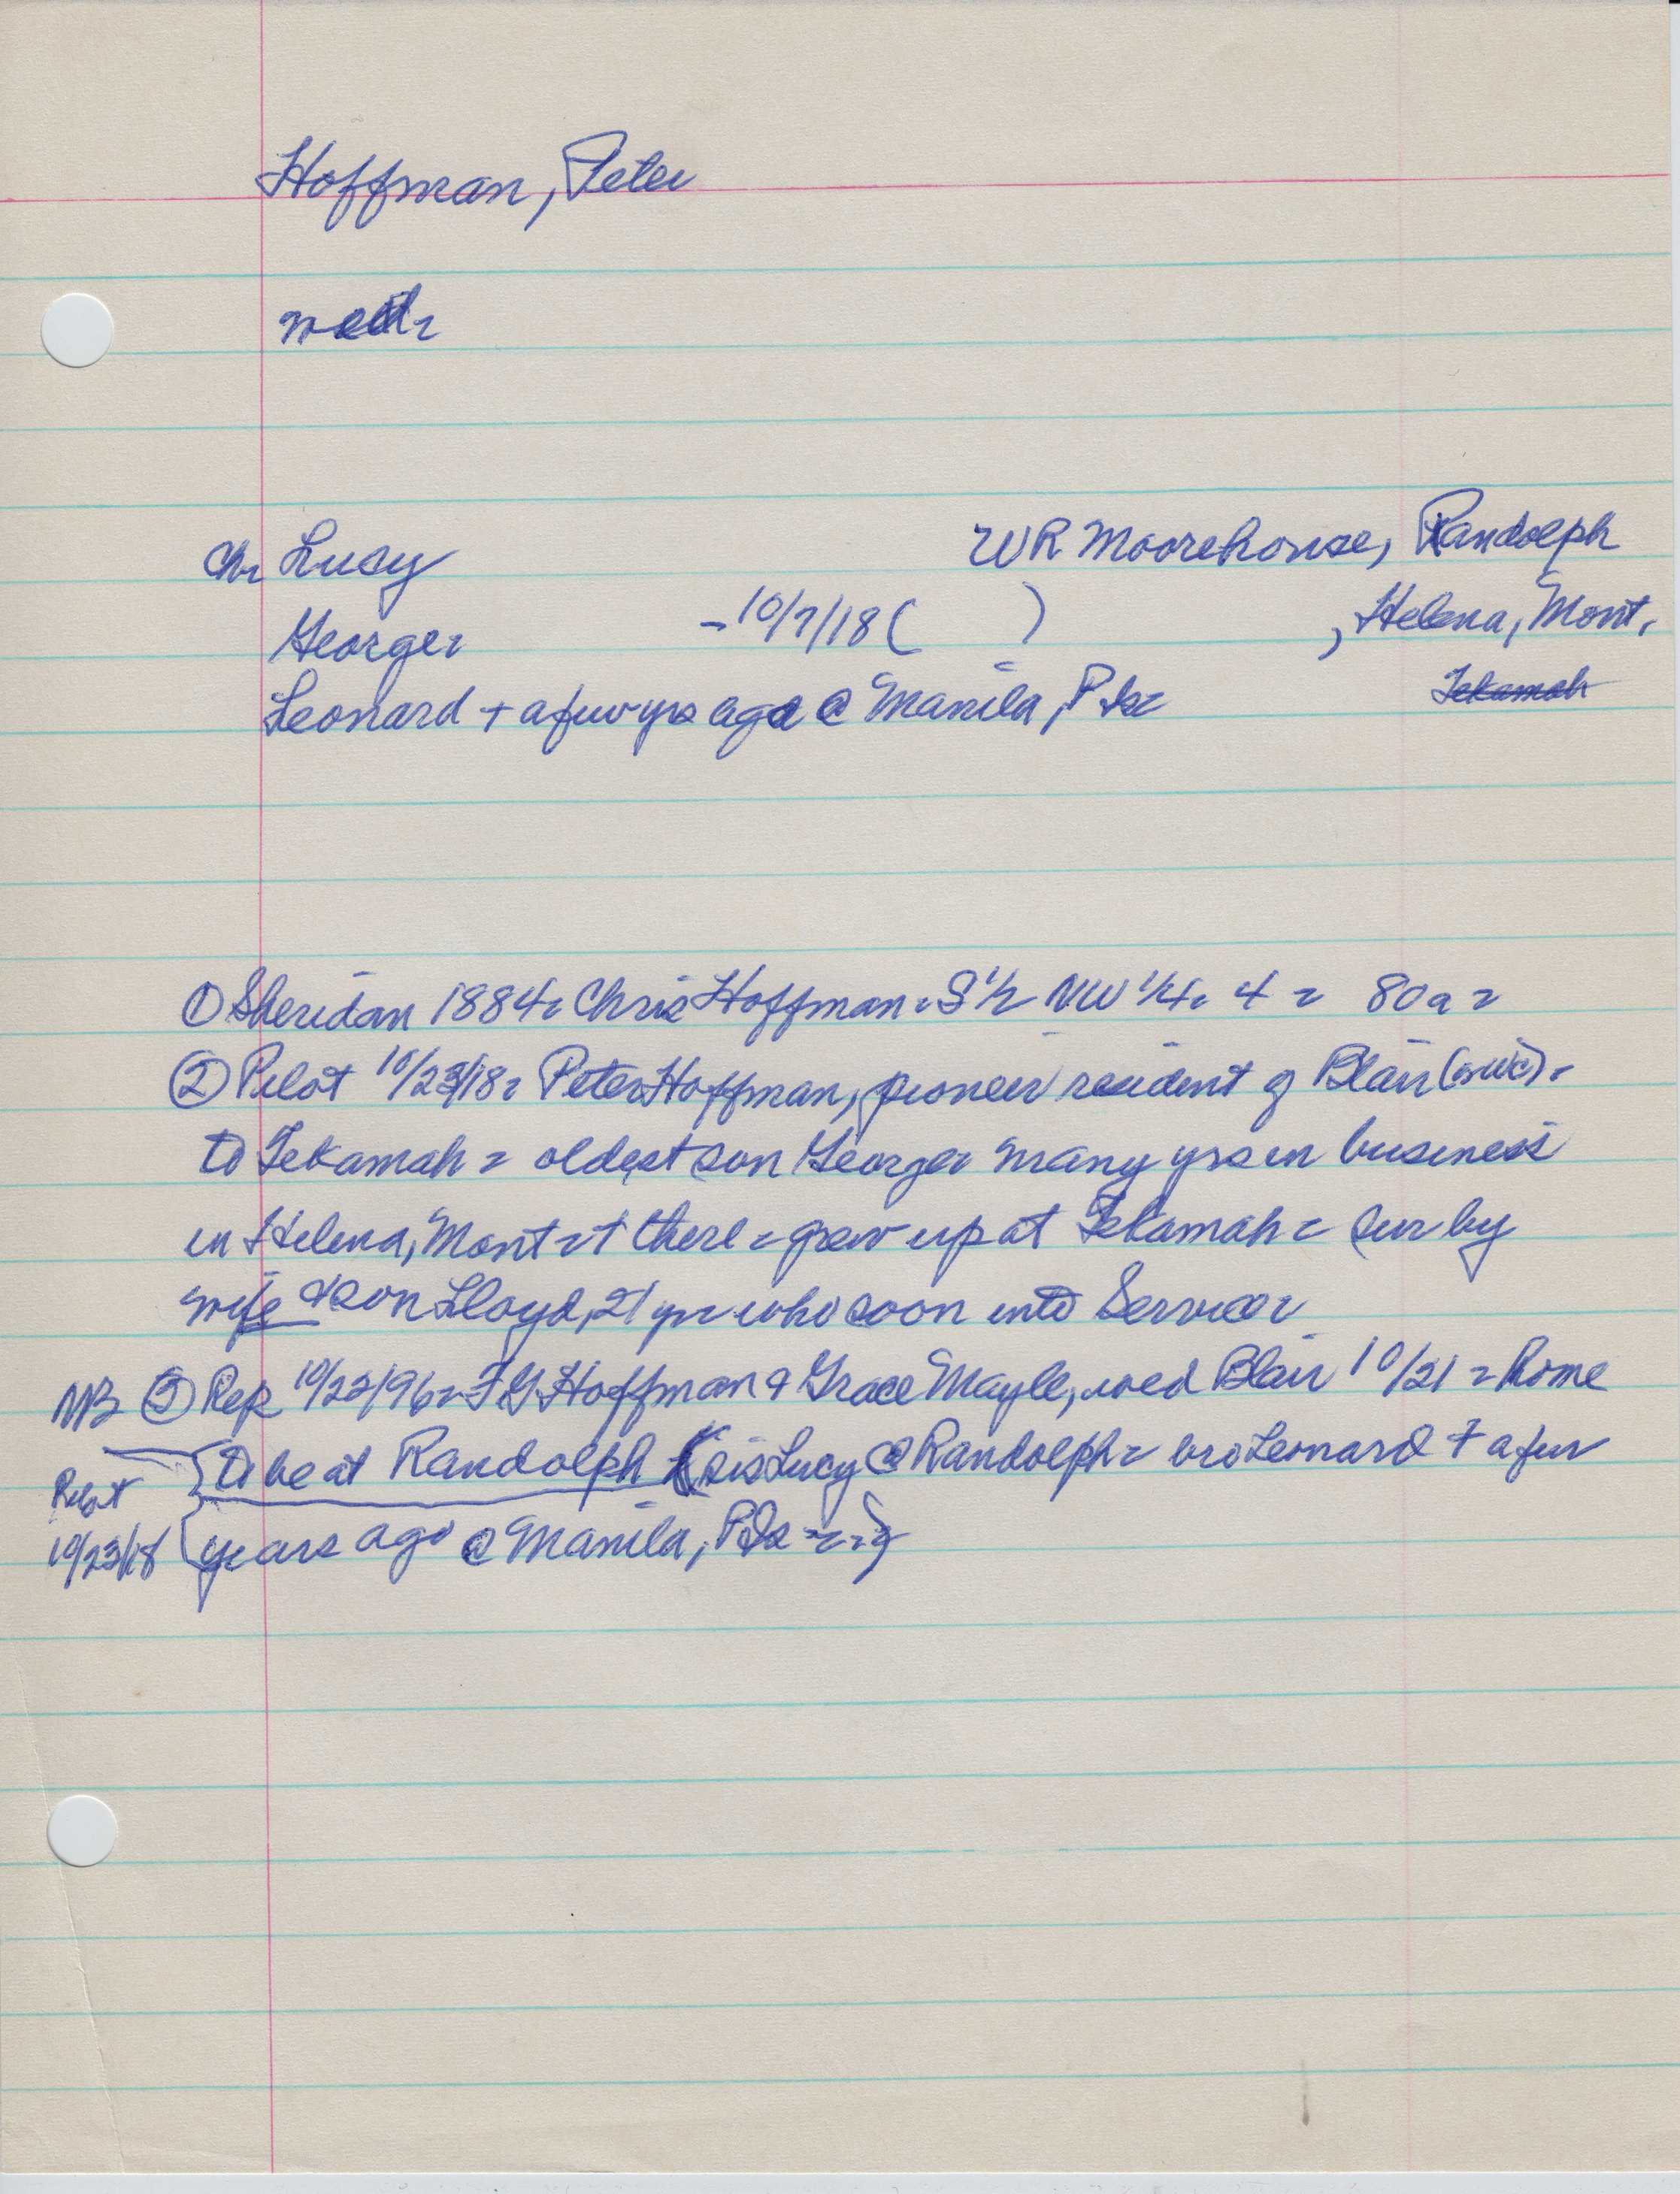 Hoffman, Peter
wed =
Ch = Lucy WR Moorehouse, Randolph
George = - 10/7/18 ( ) , Helena, Mont.
Leonard + a few yrs ago @ Manila, P Is = Tekamah
① Sheridan 1884 = Chris Hoffman = S 1/2 NW 1/4 = 4 = 80 a =
② Pilot 10/23/18 = Peter Hoffman, pioneer resident of Blair (sic) =
to Tekamah = oldest son George = many yrs in business
in Helena, Mont = + there = grew up at Tekamah = sur by
wife & son Lloyd, 21 yr = who soon into Service =
NB ③ Rep 10/22/96 = F G Hoffman & Grace Mayle, wed Blair 10/21 = home
to be at Randolph { sis Lucy @ Randolph = bro Leonard + a few
Pilot
10/23/18 { years ago @ Manila, P Is = = }